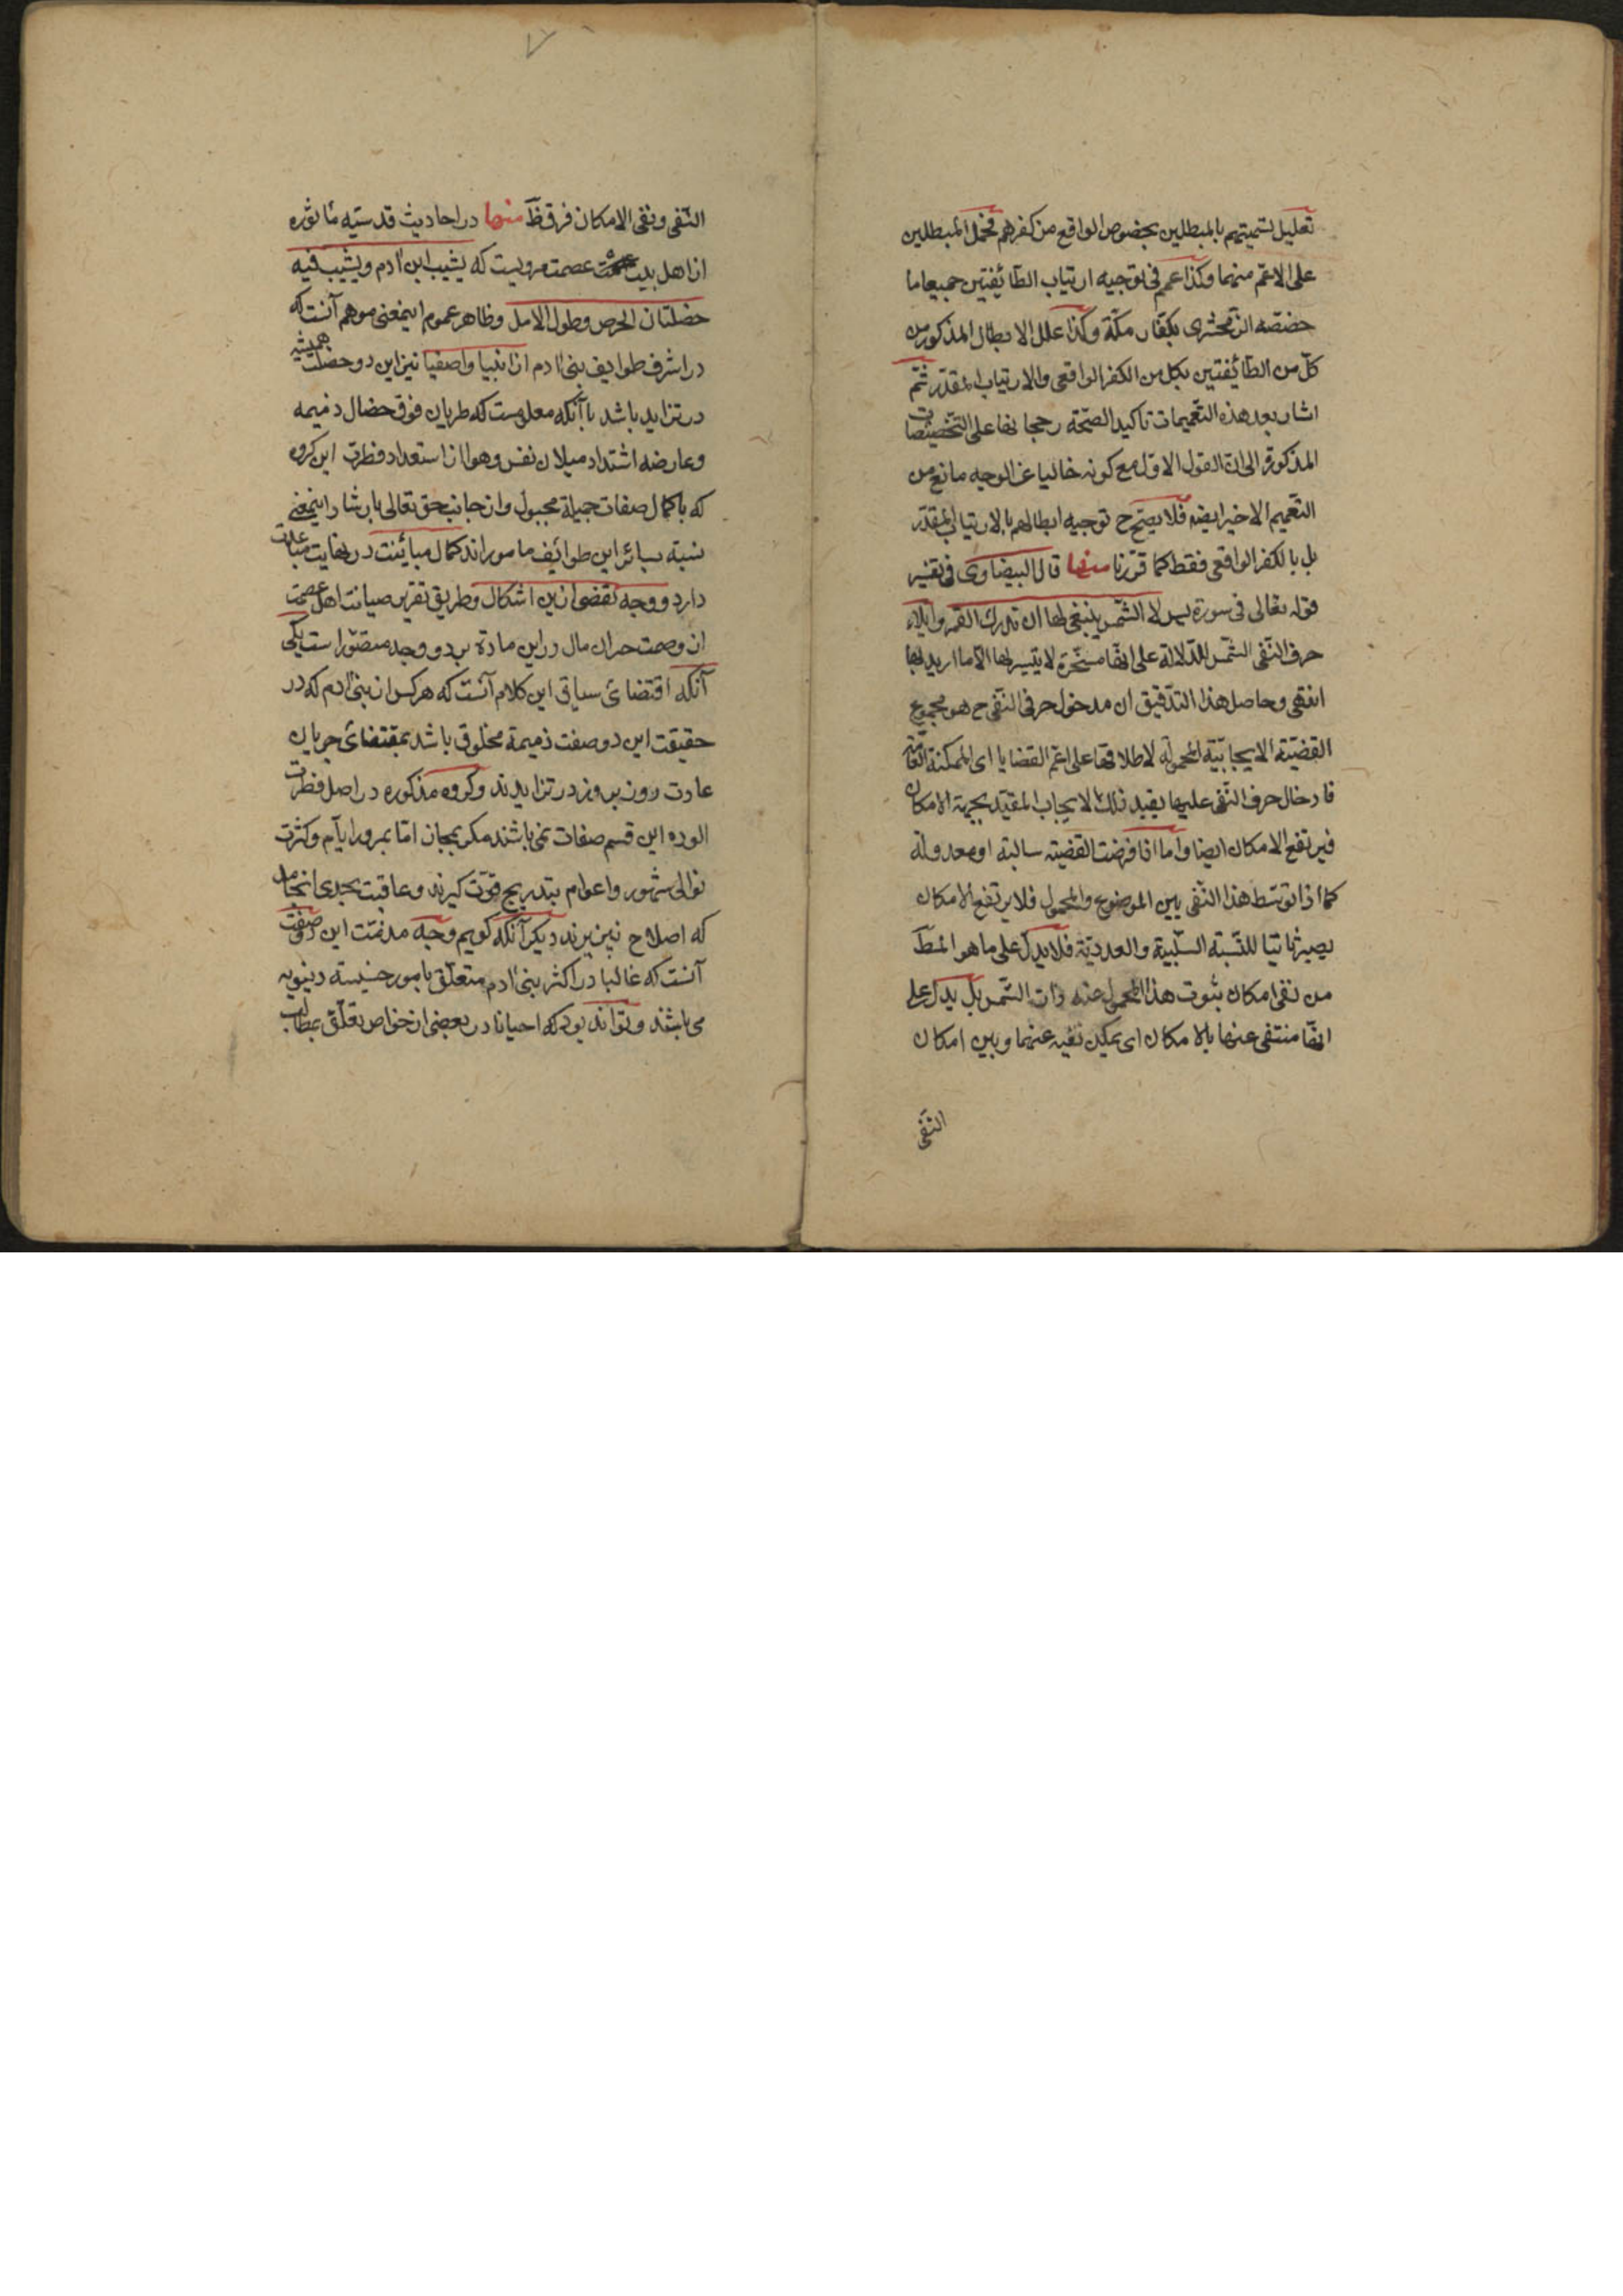 تعليل لتسميتهم بالمبطلين بخصوص الواقع من كفرهم فحمل المبطلين
على الاعمّ منهما وكذا عمم فى توجيه ارتياب الطّائفتين جميعا ما
خصّصه الزّمخشرى بكفّار مكّة وكذا علل الابطال المذكور من
كلّ من الطّائفتين بكل من الكفر الواقعى والارتياب المقدّر ثمّ
اشار بعد هذه التّعميمات تاكيد الصحّة رجحانها على التّخصيصات
المذكورة الى انّ القول الاوّل مع كونه خاليا عن الوجه مانع من
التّعميم الاخير ايضه فلا يصحّ ح توجيه ابطالهم بالارتياب المقدّر
بل بالكفر الواقعى فقط كما قرّرنا منها قال البيضاوى فى تفسير
قوله تعالى فى سورة يس لا الشّمس ينبغى لها ان تدرك القمر وايلاء
حرف النّفى الشّمس للدّلالة على انّها مسخّرة لا يتيسر لها الّا ما اريد بها
انتهى وحاصل هذا التّدقيق ان مدخول حرف النّفى ح هو مجموع
القضيّة الايجابيّة المحمولة لاطلاقها على اعمّ القضايا اى الممكنة العامّة
فادخال حرف النّفى عليها يفيد ذلك الايجاب المقيّد بجهة الامكان
فيرتفع الامكان ايضا واما اذا فرضت القضيّة سالبة او معدولة
كما اذا توسّط هذا النّفى بين الموضوع والمحمول فلا يرتفع الامكان
يصير ثابتا للنّسبة السّلبية والعدديّة فلا يدلّ على ما هو المطّ
من نفى امكان ثبوت هذا المحمول ذات الشّمس بل يدلّ على
انّها منتفى عنها بالامكان اى يمكن نفيه عنهما وبين امكان
النّفى
النّفى ونفى الامكان فرق ظّ منها در احاديث قدسيّه ماثوره
از اهل بيت عصمت مرويست كه يشيب ابن آدم ويشيب فيه
خصلتان الحرص وطول الامل وظاهر عموم اينمعنى موهم آنست كه
در اشرف طوايف بنى آدم از انبيا واصفيا نيز اين دو خصلت هميشه
در تزايد باشد با آنكه معلومست كه طريان فوق خصال ذميمه
وعارضه اشتداد ميلان نفس وهوا از استعداد فطرت اين كروه
كه باكمال صفات جميلة مجبول واز جانب حق تعالى بارشاد اينمعنى
نسبة بسائر اين طوائف مامور اند كمال مباينت در نهايت مباعدت
دارد ووجه تفصى از اين اشكال وطريق تقرير صيانت اهل عصمت
از وصمت حرمان مال در اين مادة بر دو وجه متصوّر است يكى
آنكه اقتضائ سياق اين كلام آنست كه هر كس از بنى آدم كه در
حقيقت اين دو صفت ذميمة مخلوق باشد بمقتضائ جريان
عادت روز بروز در تزايدند وكروه مذكوره در اصل فطرت
الوده اين قسم صفات نمى باشند مكر بمجاز امّا بمرور ايّام وكثرت
توالى شهور واعوام بتدريج قوّت كيرند وعاقبت بجدى انجامد
كه اصلاح نپزيرند ديكر آنكه كويم وجه مذمّت اين دو صفت
آنست كه غالبا در اكثر بنى آدم متعلّق بامور خسيسه دنيويه
مى باشند وتواند بود كه احيانا در بعضى از خواص تعلّق بمطالب